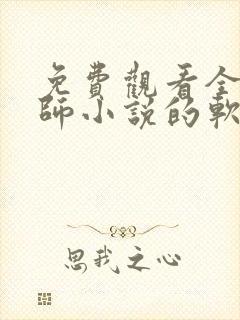 免費觀看全
師小說的軟
思我之心